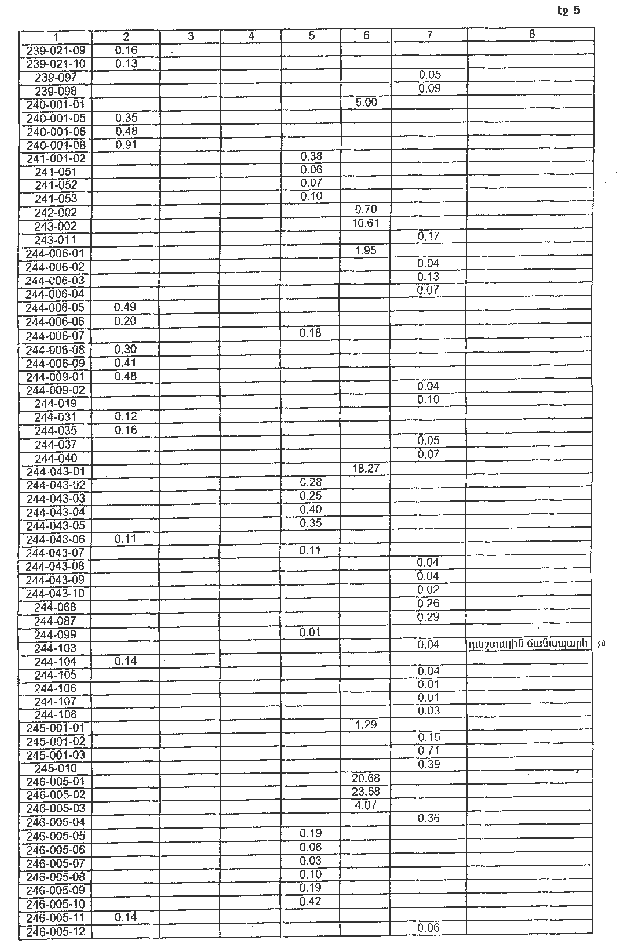 էջ 5
1 2 3 4 5 6 7 8
239-021-09 0.16
239-021-10 0.13
239-097 0.05
239-098 0.09
240-001-01 5.00
240-001-05 0.35
240-001-06 0.48
240-001-08 0.91
241-001-02 0.38
241-051 0.06
241-052 0.07
241-053 0.10
242-002 0.70
243-002 10.61
243-011 0.17
244-006-01 1.95
244-006-02 0.04
244-006-03 0.13
244-006-04 0.07
244-006-05 0.49
244-006-06 0.20
244-006-07 0.18
244-006-08 0.30
244-006-09 0.41
244-009-01 0.48
244-009-02 0.04
244-019 0.10
244-031 0.12
244-035 0.16
244-037 0.05
244-040 0.07
244-043-01 18.27
244-043-02 0.28
244-043-03 0.25
244-043-04 0.40
244-043-05 0.35
244-043-06 0.11
244-043-07 0.11
244-043-08 0.04
244-043-09 0.04
244-043-10 0.02
244-068 0.26
244-087 0.29
244-099 0.01
244-103 0.04 դաշտային ճանապարհ
244-104 0.14
244-105 0.04
244-106 0.01
244-107 0.01
244-108 0.03
245-001-01 1.29
245-001-02 0.15
245-001-03 0.71
245-010 0.39
246-005-01 20.68
246-005-02 23.58
246-005-03 4.07
246-005-04 0.36
246-005-05 0.19
246-005-06 0.06
246-005-07 0.03
246-005-08 0.10
246-005-09 0.19
246-005-10 0.42
246-005-11 0.14
246-005-12 0.06